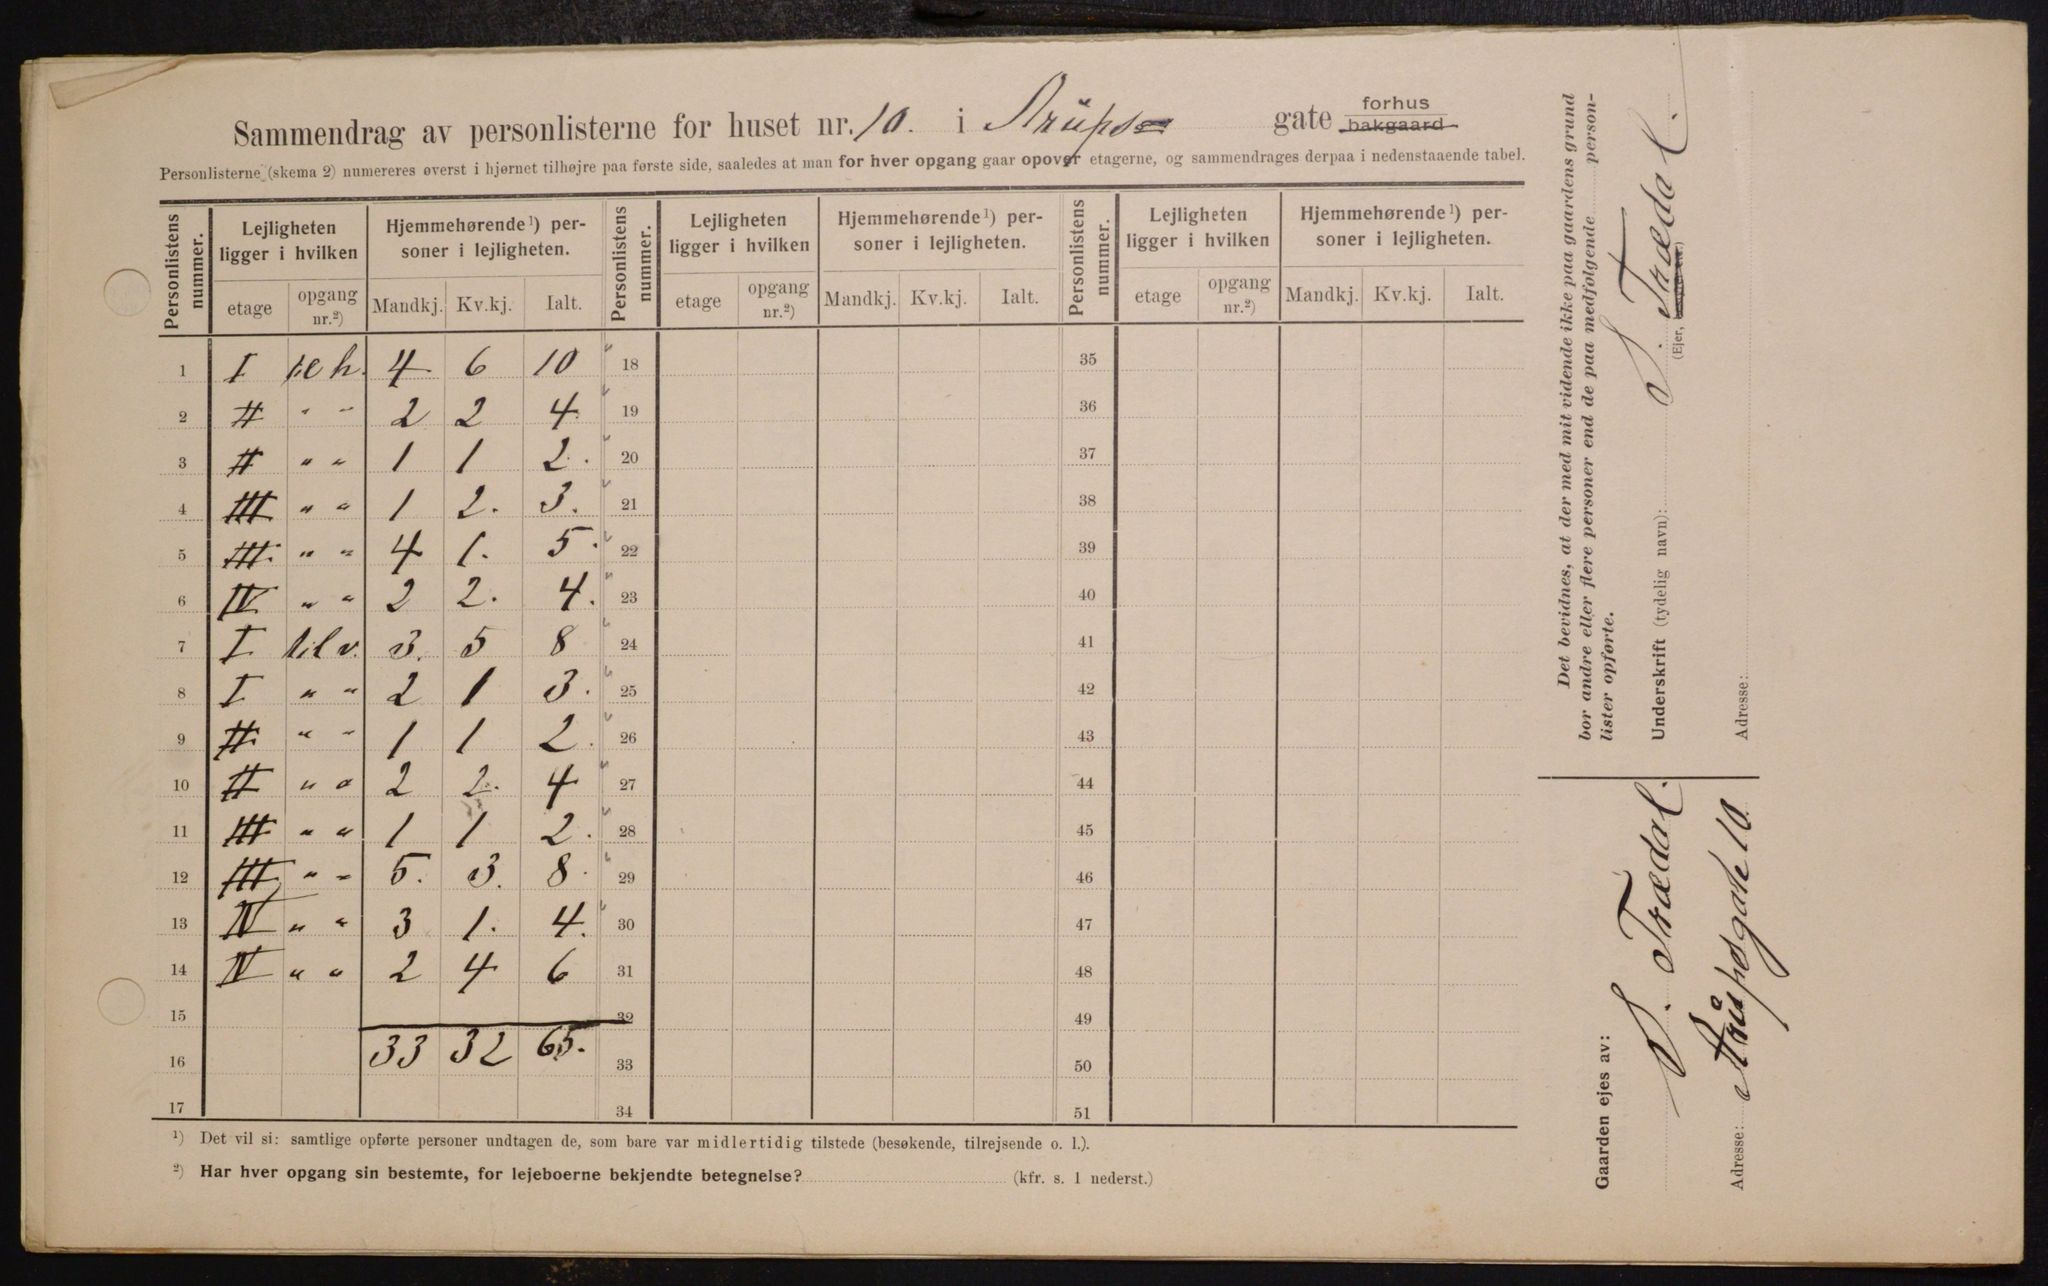 Sammendrag av personlisterne for huset nr. 10. i Strüps gate forhus bakgaard
Personlisterne (skema 2) numereres øverst i hjørnet tilhøjre paa første side, saaledes at man for hver opgang gaar opover etagerne, og sammendrages derpaa i nedenstaaende tabel.
Personlistens nummer. Lejligheten ligger i hvilken Hjemmehørende¹) personer i lejligheten. Personlistens nummer. Lejligheten ligger i hvilken Hjemmehørende¹) personer i lejligheten. Personlistens nummer. Lejligheten ligger i hvilken Hjemmehørende¹) personer i lejligheten.
etage opgang nr.²) Mandkj. Kv.kj. Ialt. etage opgang nr.²) Mandkj. Kv.kj. Ialt. etage opgang nr.²) Mandkj. Kv.kj. Ialt.
1 I h. 4 6 10 18 35
2 II " " 2 2 4. 19 36
3 II " " 1 1 2. 20 37
4 III " " 1 2. 3. 21 38
5 III. " " 4 1. 5. 22 39
6 IV " " 2 2. 4. 23 40
7 I til v. 3. 5 8 24 41
8 I " " 2 1 3. 25 42
9 II " " 1 1 2. 26 43
10 II " " 2 2. 4 27 44
11 III " " 1 1 2. 28 45
12 III " " 5. 3. 8. 29 46
13 IV " " 3 1. 4. 30 47
14 IV " " 2 4 6 31 48
15 32 49
16 33 32 65. 33 50
17 34 51
¹) Det vil si: samtlige opførte personer undtagen de, som bare var midlertidig tilstede (besøkende, tilrejsende o. l.).
²) Har hver opgang sin bestemte, for lejeboerne bekjendte betegnelse? (kfr. s. 1 nederst.)
Det bevidnes, at der med mit vidende ikke paa gaardens grund
bor andre eller flere personer end de paa medfølgende person-
lister opførte.
Underskrift (tydelig navn): S. Trædal.
(Ejer,
Adresse:
Gaarden ejes av:
S. Trædal.
Adresse: Strüpsgate 10.